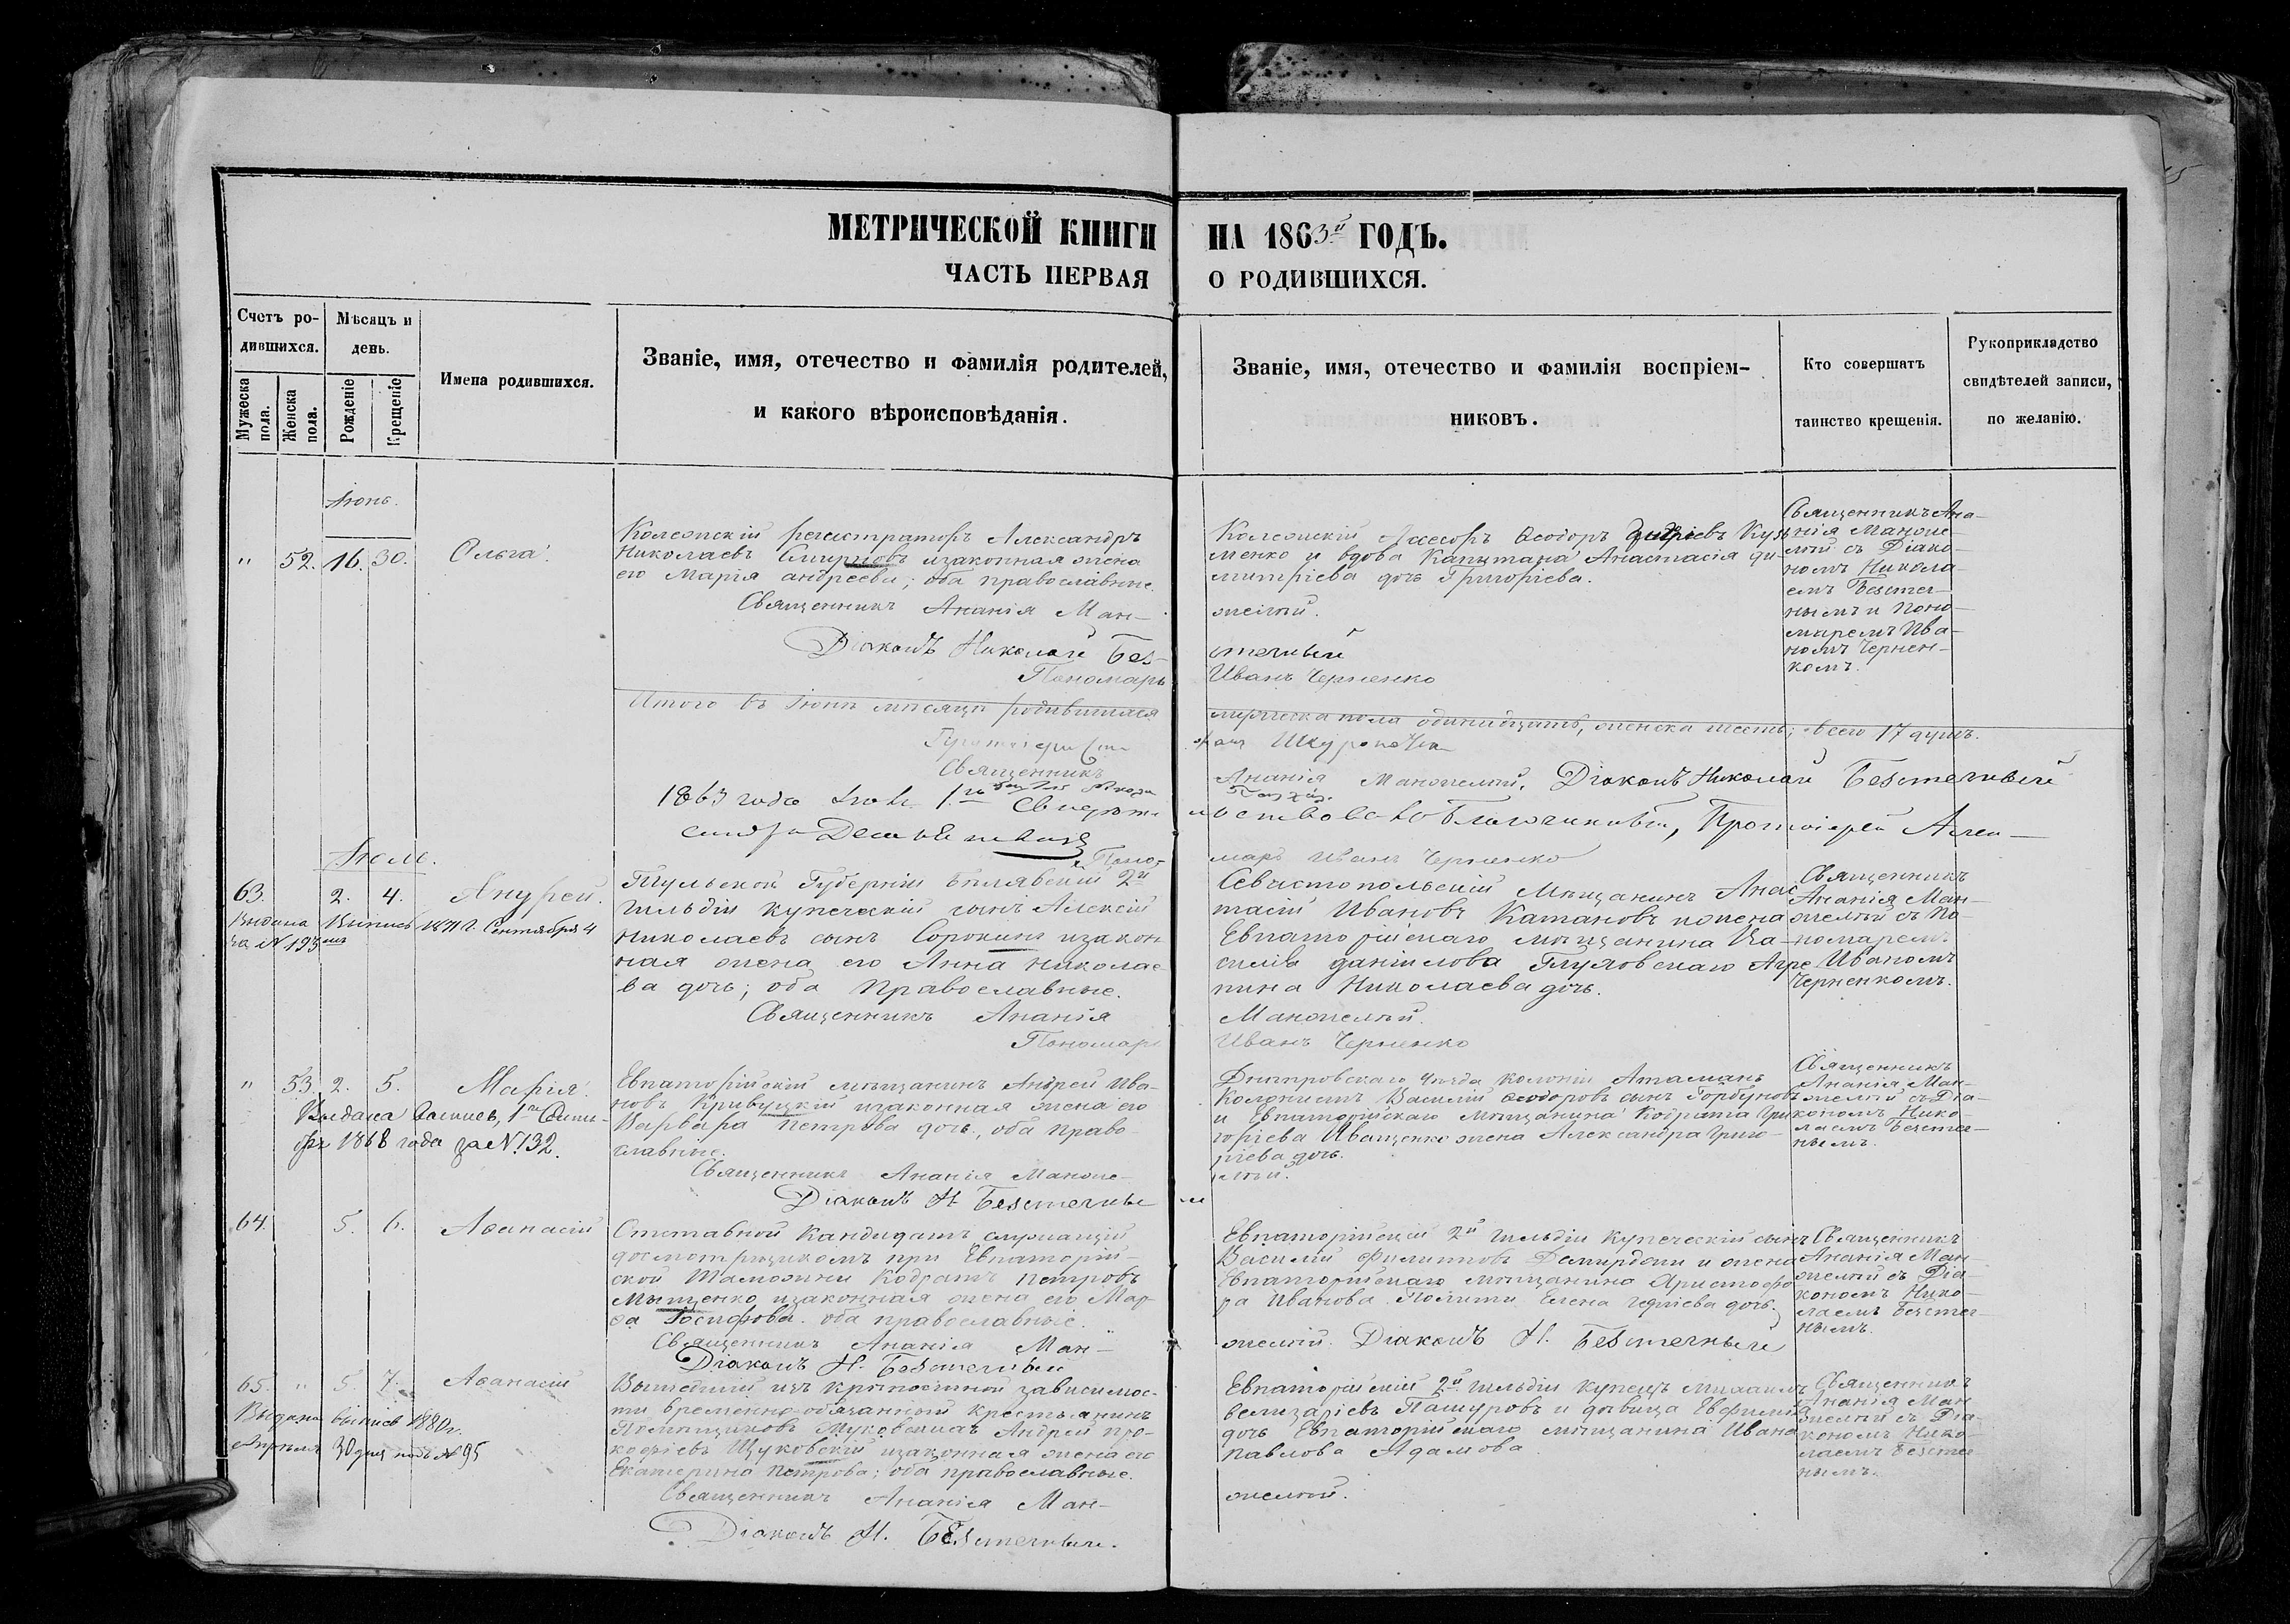 МЕТРИЧЕСКОЙ КНИГИ НА 1863й ГОДЪ.
ЧАСТЬ ПЕРВАЯ О РОДИВШИХСЯ.
Счетъ ро-
дившихся.
Мѣсяцъ и
день.
Мужеска
пола.
Женска
пола.
Рожденіе
Крещеніе
Имена родившихся.
Званіе, имя, отечество и фамилія родителей,
и какого вѣроисповѣданія.
Званіе, имя, отечество и фамилія воспріем-
никовъ.
Кто совершатъ
таинство крещенія.
Рукоприкладство
свидѣтелей записи,
по желанію.
Іюнь.
" 52. 16. 30. Ольга.
Колежскій регистраторъ Александръ
Николаевъ Смирновъ изаконная жена
его Марія андреева; оба православные.
Священникъ Ананія Ман-
Діаконъ Николай Без-
Пономарь
Колежскій Ассесоръ Ѳеодоръ Кузь
менко и вдова Капитана Анастасія ди
митріева дочь Григоріева.
жемій.
стечный
Иванъ Черненко
Священникъ Ана-
нія Маноже-
мій съ Діако-
номъ Никола-
емъ Безтеч-
нымъ и Поно-
маремъ Ива-
номъ Чернен-
комъ.
Итого въ Іюнѣ мѣсяцѣ родившихся
мужеска пола одинадцать, женска шесть, всего 17 душъ.
Священникъ
Ананія Маножемій. Діаконъ Николай Безтечный
1863 года
Протоіерей Алек-
Поно-
марь Иванъ Черненко
Іюль.
63. 2. 4. Ануфрей.
Выдана Выпись 1871 г. Сентября 4
за № 193мъ
Тульской Губерніи Бѣлявскій 2й
гильдіи купеческій сынъ Алексій
Николаевъ сынъ Сорокинъ изакон
ная жена его Анна Николае-
ва дочь; оба Православные.
Священникъ Ананія
Пономарь
Севастопольскій Мѣщанинъ Анас
тасій Ивановъ Катановъ и жена
Евпаторійскаго мѣщанина Ва-
силія даніилова Глуховскаго Агре
пина Николаева дочь.
Маножемій.
Иванъ Черненко
Священникъ
Ананія Ман-
жемій съ По-
номаремъ
Иваномъ
Черненкомъ.
" 53. 2. 5. Марія.
Выдана Выпись, 1го
1868 года за № 132.
Евпаторійскій мѣщанинъ Андрей Ива-
новъ Кривуцкій изаконная жена его
Варвара Петрова дочь, оба Право-
славные.
Священникъ Ананія Маноже-
Діаконъ Н. Безтечны
й
Днѣпровскаго Уѣзда колоніи Атамань
Колонистъ Василій Ѳеодоровъ сынъ Горбуновъ
и Евпаторійскаго Мѣщанина Кодрата Гри
горіева Иващенко жена Александра Григо-
ріева дочь.
мій.
Священникъ
Ананія Ман-
жемій съ Діа-
кономъ Нико-
лаемъ Безтеч-
нымъ.
64. 5. 6. Аѳанасій
Стставной Кандидатъ служащій
досмотрщикомъ при Евпаторій-
ской Таможни Кодратъ Петровъ
Мыщенко изаконная жена его Мар-
ѳа Іосифова. оба православные.
Священникъ Ананія Ман-
Діаконъ Н. Безтечный
Евпаторійскій 2й гильдіи купеческій сынъ
Василій Филиповъ Демирджи и жена
Евпаторійскаго мѣщанина Аристофо
ра Иванова Полити Елена дочь.
жемій. Діаконъ Н. Безтечный
Священникъ
Ананія Ман-
жемій съ Діа-
кономъ Нико-
лаемъ Безтеч
нымъ.
65. " 5. 7. Аѳанасій
Выдана выпись 1880 г.
Апрѣля 30 дня подъ № 95
Вышедшій изъ крѣпостной зависимос-
ти временно-обязанный крестьянинъ
Помѣщиковъ Андрей про-
кофіевъ Щуковскій изаконная жена его
Екатерина Петрова; оба православные.
Священникъ Ананія Ман-
Діаконъ Н. Безтечный.
Евпаторійскій 2й гильдіи купецъ Михаилъ
велизаріевъ Пашуровъ и дѣвица Евфимія
дочь Евпаторійскаго мѣщанина Ивана
Павлова Адамова
жемій.
Священникъ
Ананія Ман
жемій съ Діа-
кономъ Нико-
лаемъ Безтеч
нымъ.